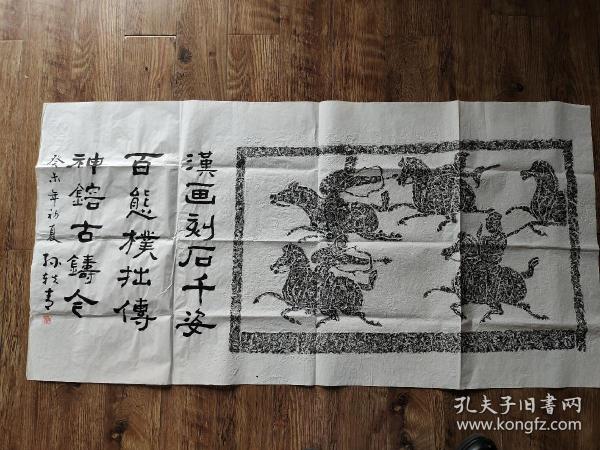 漢画刻石千姿
百態樸拙傳
神鎔古鑄今
癸未年初夏 孙轶青
孔夫子旧書网
www.kongfz.com